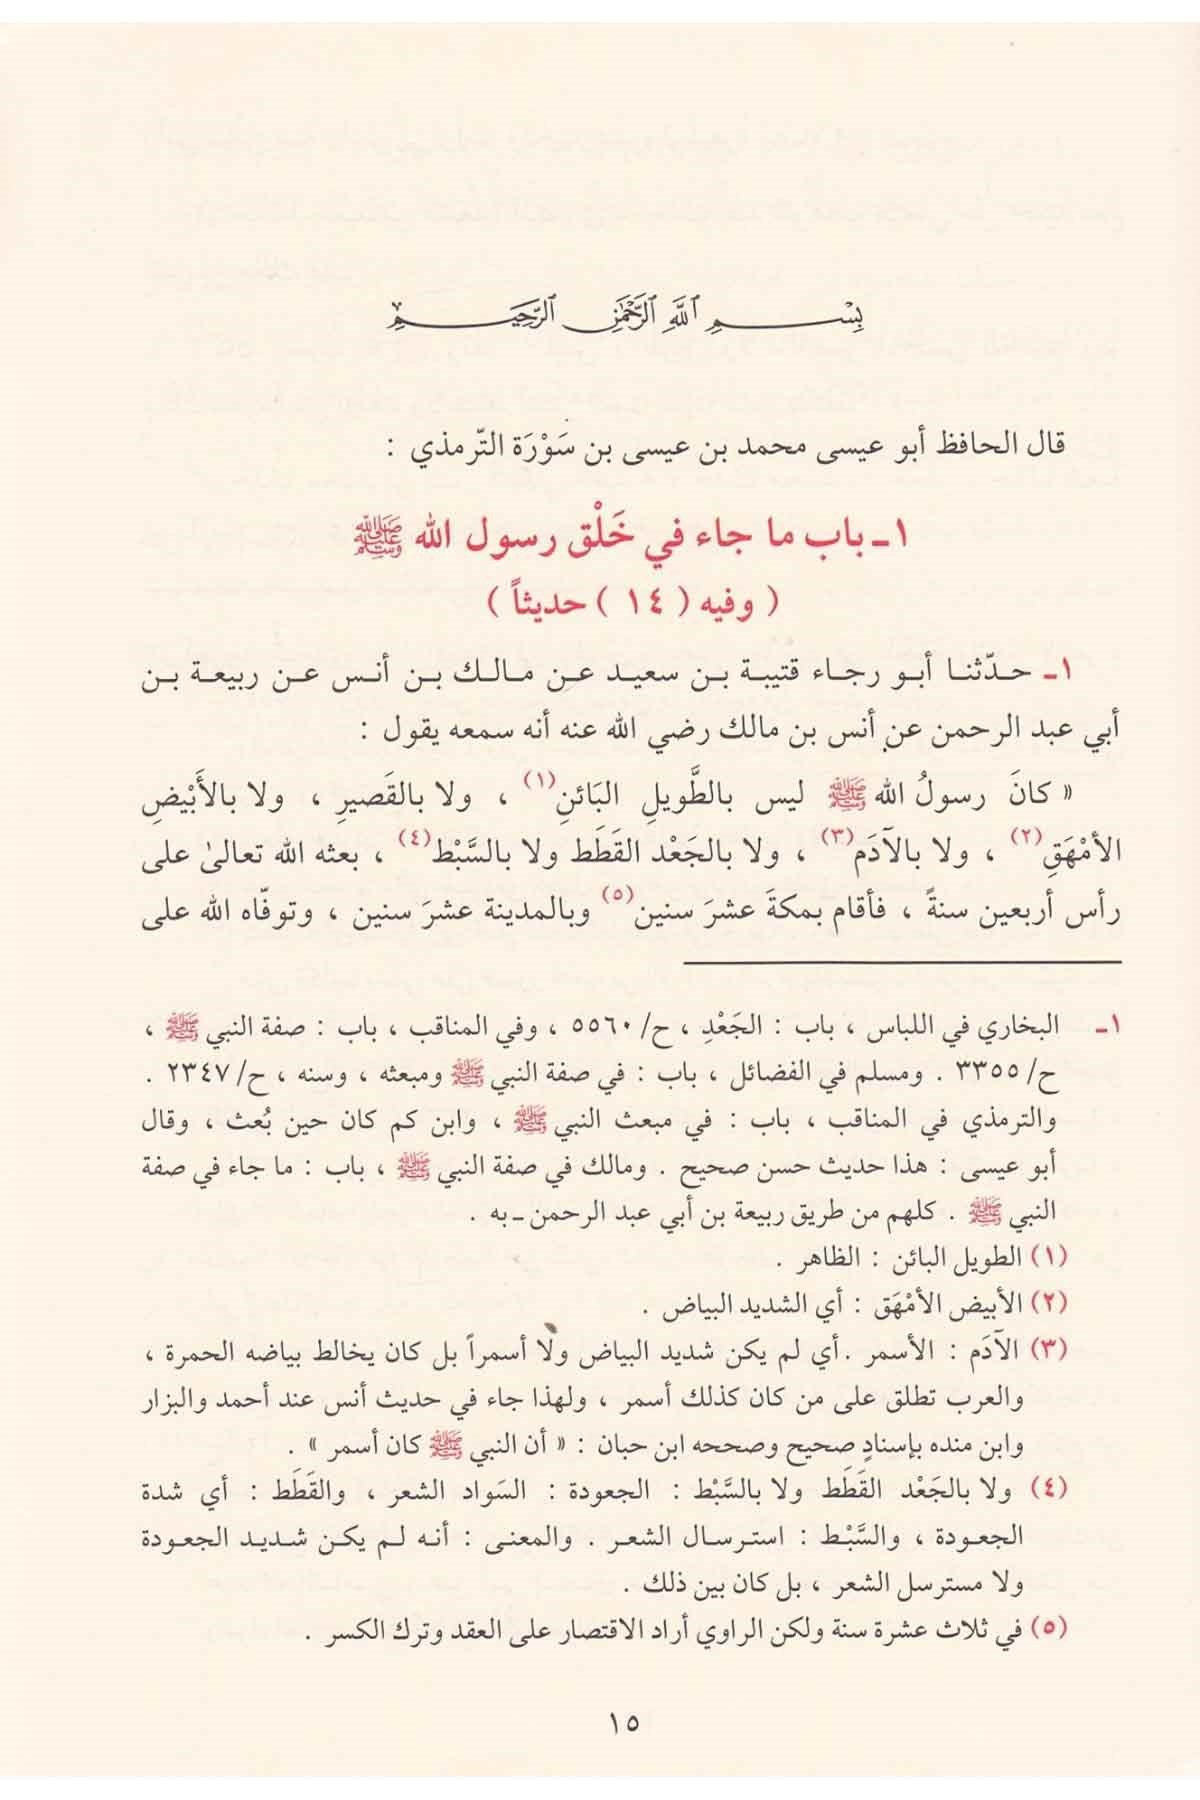 بِسْمِ ٱللَّهِ ٱلرَّحْمَٰنِ ٱلرَّحِيمِ
قال الحافظ أبو عيسى محمد بن عيسى بن سَوْرَة التّرمذي :
١ـ باب ما جاء في خَلْق رسول الله ﷺ
( وفيه ( ١٤ ) حديثاً )
١ـ حدّثنا أبو رجاء قتيبة بن سعيد عن مالك بن أنس عن ربيعة بن
أبي عبد الرحمن عن أنس بن مالك رضي الله عنه أنه سمعه يقول :
« كانَ رسولُ الله ﷺ ليس بالطَّويلِ البَائنِ(١) ، ولا بالقَصيرِ ، ولا بالأَبْيْضِ
الأمْهَقِ(٢) ، ولا بالآدَم(٣) ، ولا بالجَعْد القَطَط ولا بالسَّبْط(٤) ، بعثه الله تعالىٰ على
رأس أربعين سنةً ، فأقام بمكةَ عشرَ سنين(٥) وبالمدينة عشرَ سنين ، وتوفّاه الله على
١ـ البخاري في اللباس ، باب : الجَعْدِ ، ح/ ٥٥٦٠ ، وفي المناقب ، باب : صفة النبي ﷺ ،
ح/ ٣٣٥٥ . ومسلم في الفضائل ، باب : في صفة النبي ﷺ ومبعثه ، وسنه ، ح/ ٢٣٤٧ .
والترمذي في المناقب ، باب : في مبعث النبي ﷺ ، وابن كم كان حين بُعث ، وقال
أبو عيسى : هذا حديث حسن صحيح . ومالك في صفة النبي ﷺ ، باب : ما جاء في صفة
النبي ﷺ . كلهم من طريق ربيعة بن أبي عبد الرحمن ـ به .
(١) الطويل البائن : الظاهر .
(٢) الأبيض الأمْهَق : أي الشديد البياض .
(٣) الآدَم : الأسمر . أي لم يكن شديد البياض ولا أسمراً بل كان يخالط بياضه الحمرة ،
والعرب تطلق على من كان كذلك أسمر ، ولهذا جاء في حديث أنس عند أحمد والبزار
وابن منده بإسنادٍ صحيح وصححه ابن حبان : « أن النبي ﷺ كان أسمر » .
(٤) ولا بالجَعْد القَطَط ولا بالسَّبْط : الجعودة : السَواد الشعر ، والقَطَط : أي شدة
الجعودة ، والسَّبْط : استرسال الشعر . والمعنى : أنه لم يكن شديد الجعودة
ولا مسترسل الشعر ، بل كان بين ذلك .
(٥) في ثلاث عشرة سنة ولكن الراوي أراد الاقتصار على العقد وترك الكسر .
١٥